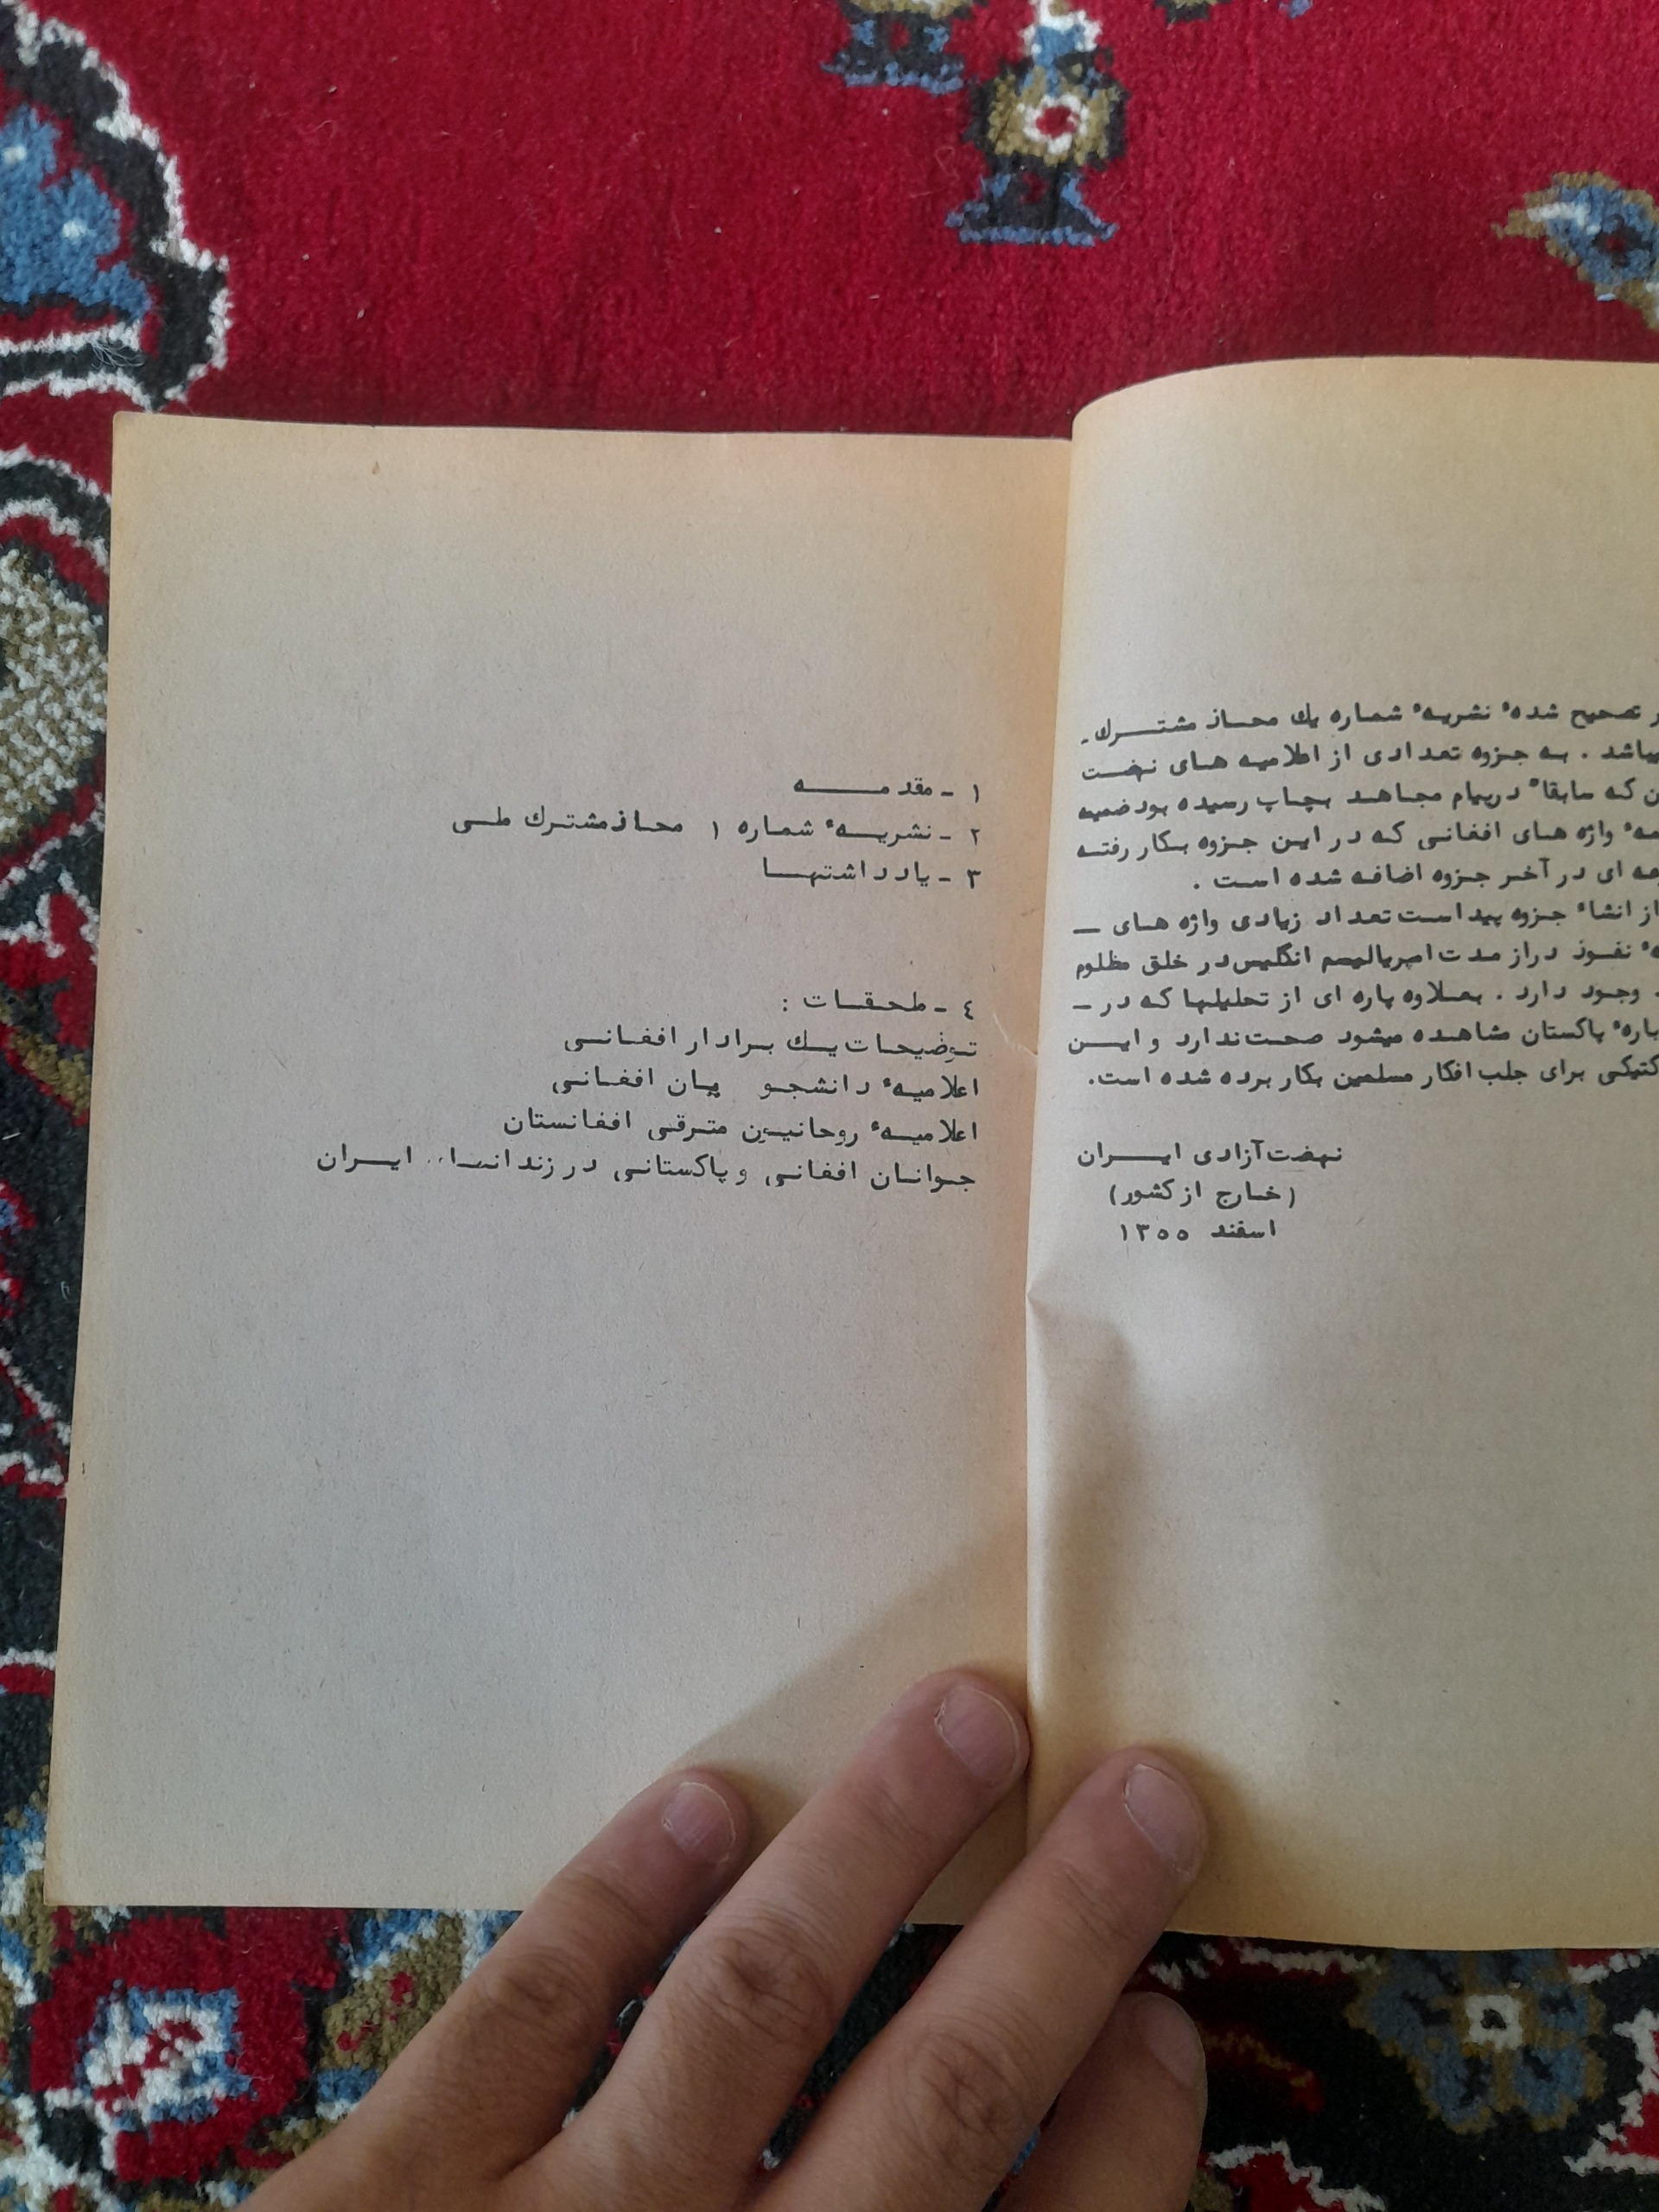 ر تصحیح شدهٔ نشریهٔ شماره یك محاذ مشترك ـ
میباشد . به جزوه تعدادی از اعلامیه های نهضت
ن که سابقاً درپیام مجاهد بچاپ رسیده بود ضمیمه
واژه های افغانی که در این جزوه بکار رفته
ای در آخر جزوه اضافه شده است .
از انشاء جزوه پیداست تعداد زیادی واژه های ـ
نفوذ دراز مدت امپریالیسم انگلیس در خلق مظلوم
وجود دارد . بعلاوه پاره ای از تحلیلها که در ـ
بارهٔ پاکستان مشاهده میشود صحت ندارد و این
تاکتیکی برای جلب افکار مسلمین بکار برده شده است.
نهضت آزادی ایران
(خارج از کشور)
اسفند ۱۳۵۵
۱ ـ مقدمه
۲ ـ نشریهٔ شماره ۱ محاذ مشترك ملی
۳ ـ یادداشتها
٤ ـ ملحقات :
توضیحات یك برادار افغانی
اعلامیهٔ دانشجو یان افغانی
اعلامیهٔ روحانیون مترقی افغانستان
جوانان افغانی و پاکستانی در ایران